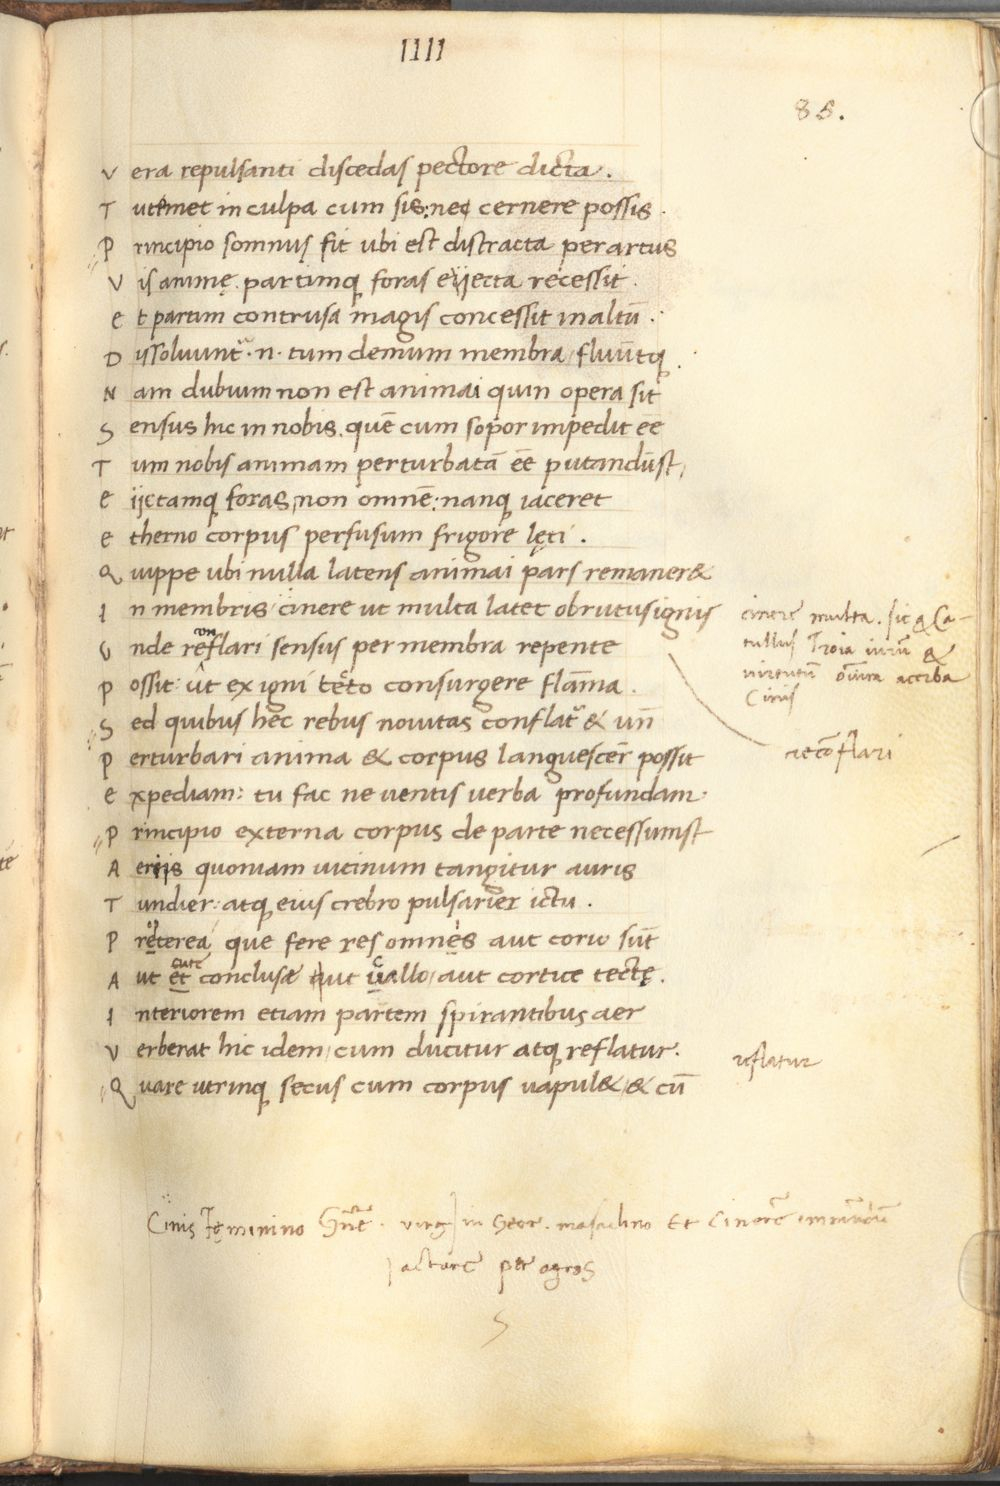 IIII
85.
V era repulsanti discedas pectore dicta.
T utemet in culpa cum sis: nec cernere possis.
P rincipio somnus fit ubi est distracta per artus
V is animę. partimq foras eijecta recessit.
E t partim contrusa magis concessit in altũ.
D issoluunt᷑. n. tum demum membra / fluũtq.
N am dubium non est animai quin opera sit
S ensus hic in nobis. quẽ cum sopor impedit eẽ
T um nobis animam perturbatã eẽ putandũst,
E iectamq foras, non omnẽ: nanq iaceret
E therno corpus perfusum frigore lęti.
Q uippe ubi nulla latens animai pars remaner&
I n membris / cinere ut multa latet obrutus ignis
cinere multa. sic & Ca-
tullus Troia uirũ &
uirtutũ oĩũm acerba
Cinis
V nde reflari sensus per membra repente
con
P ossit: ut ex igni tecto consurgere flãma.
S ed quibus hęc rebus nouitas conflat᷑ & un̄
P erturbari anima & corpus languescer̄ possit
reconflari
E xpediam: tu fac ne uentis uerba profundam.
P rincipio externa corpus de parte necessumst
A eriis quoniam uicinum tangitur auris
T undier: atq eius crebro pulsarier ictu.
P reterea que fere res omnes aut corio sũt
A ut et conclusæ aut uallo / aut cortice tectę.
cute
I nteriorem etiam partem spirantibus aer
V erberat hic idem / cum ducitur atq reflatur.
reflatur
Q uare utrinq secus cum corpus uapul& / & cũ
Cinis Fęminino virg in Geor. masculino Et Cinerẽ immũdũ
iactare per agros